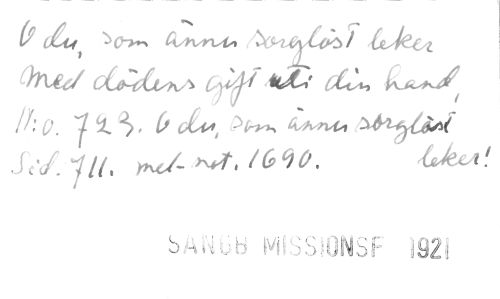 O du, som ännu sorglöst leker
Med dödens gift uti din hand,
N:o. 723. O du, som ännu sorglöst
leker!
Sid. 711. mel-not. 1690.
SÅNGB MISSIONSF 1921